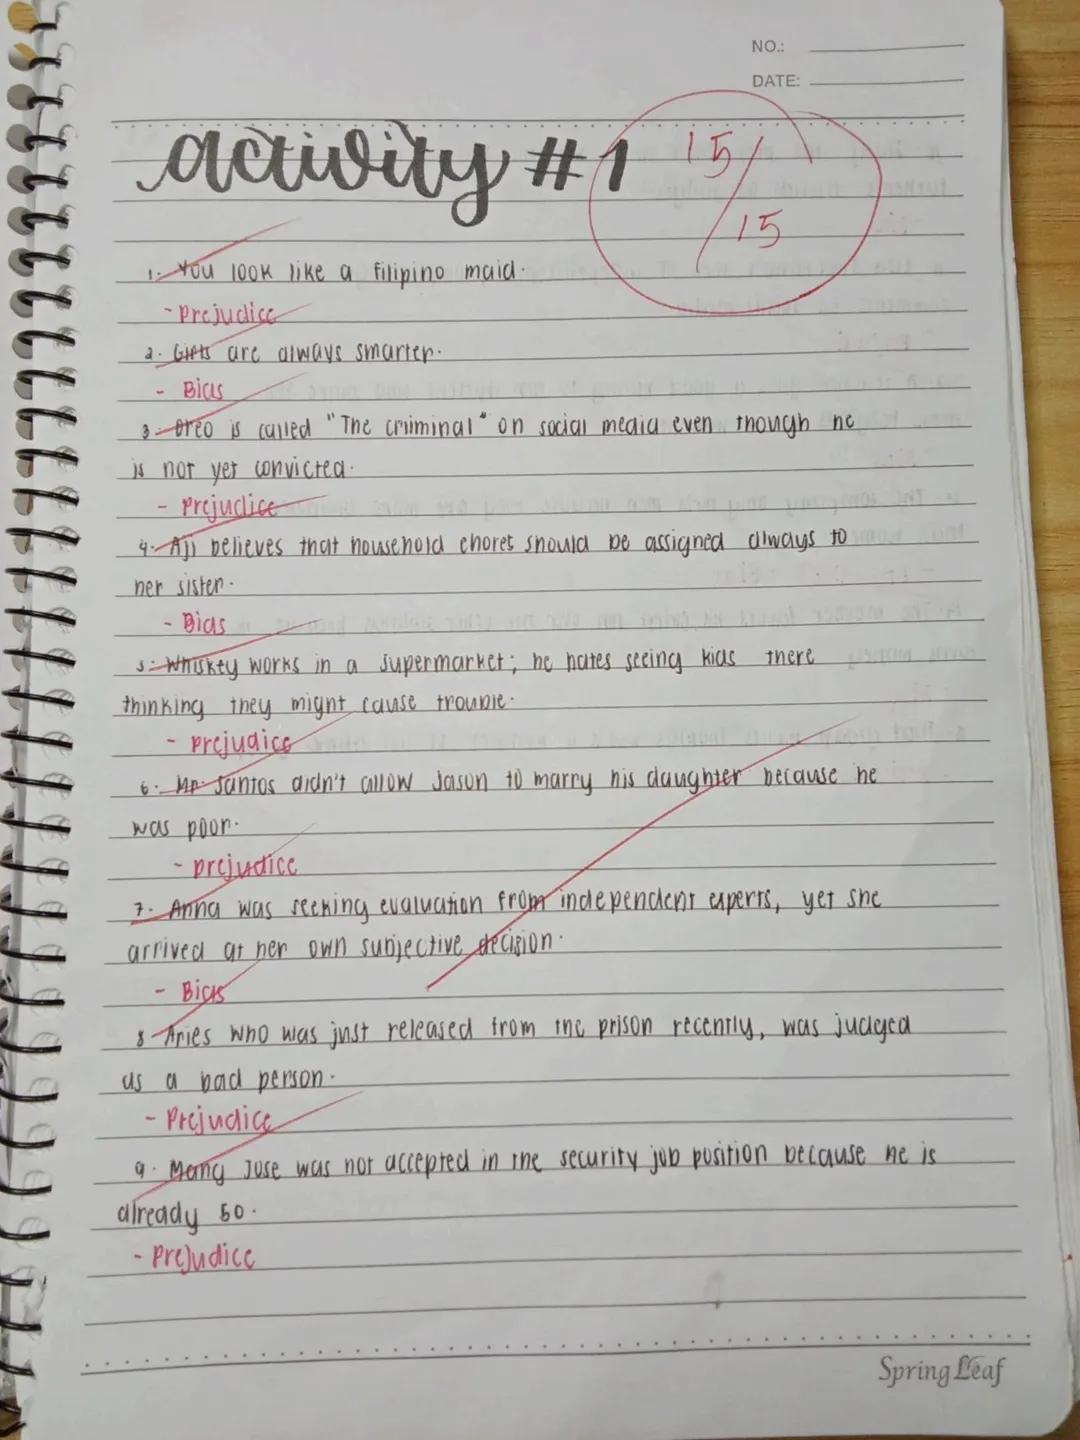 NO.:
DATE:
activity #1
15/15
1. You look like a filipino maid.
- Prejudice
2. Girls are always smarter.
- Bias
3. Oreo is called "The criminal" on social media even though he
is not yet convicted.
- Prejudice
4. Aji believes that household chores should be assigned always to
her sister.
- Bias
5. Whiskey works in a supermarket; he hates seeing kids there
thinking they might cause trouble.
- prejudice
6. Mr. Santos didn't allow Jason to marry his daughter because he
was poor.
- prejudice
7. Anna was seeking evaluation from independent experts, yet she
arrived at her own subjective decision.
- Bias
8. Aries who was just released from the prison recently, was judged
as a bad person.
- Prejudice
9. Mang Jose was not accepted in the security job position because he is
already 50.
- Prejudice
Spring Leaf